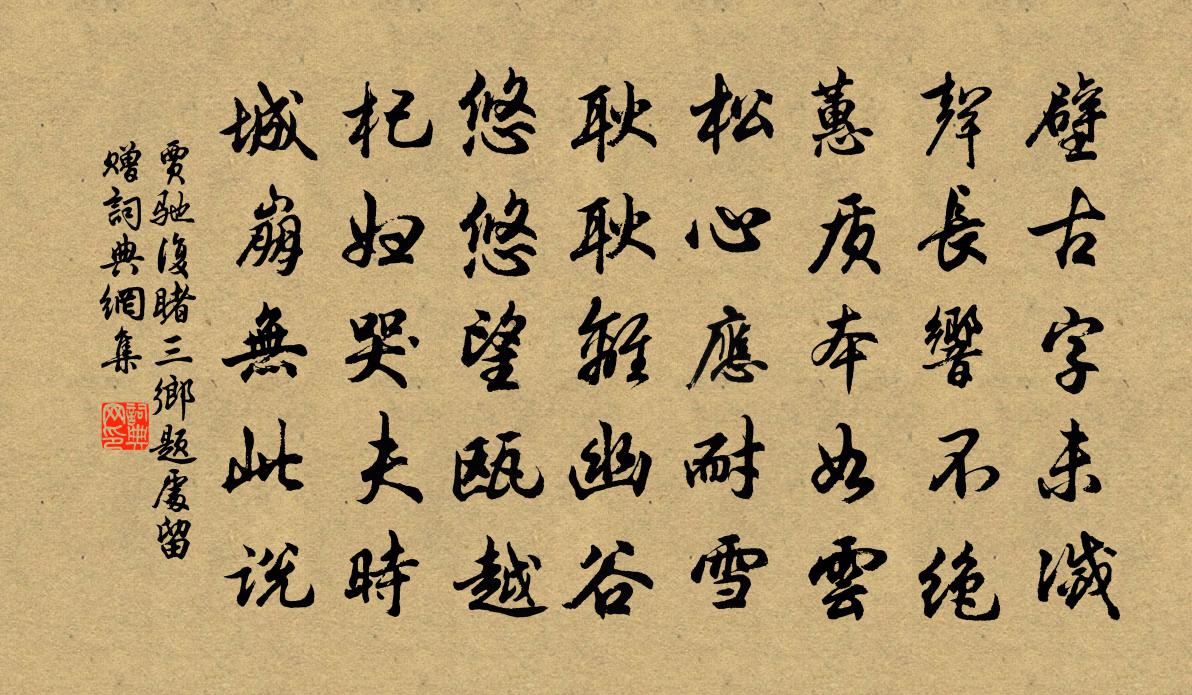 壁古字未滅
聲長響不絶
蕙质本如雲
松心應耐雪
耿耿離幽谷
悠悠望瓯越
杞妇哭夫時
城崩無此説
賈馳復睹三鄉题處留
赠詞典網集
詞典
网印